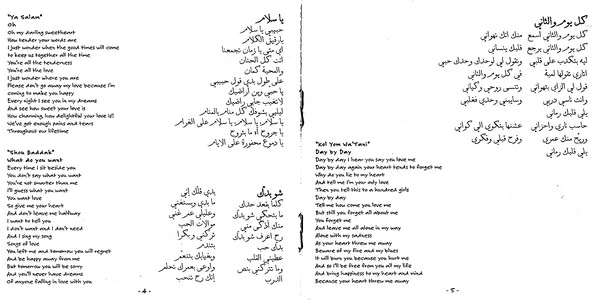 "Ya Salam"
Oh
Oh my darling sweetheart
How tender your words are
I just wonder when the good times will come
to keep us together all the time
You're all the tenderness
You're all the love
I just wonder where you are
Please don't go away my love because I'm
coming to make you happy
Every night I see you in my dreams
And see how sweet your love is
How charming, how delightful your love is!
We've got enough pains and tears
Throughout our lifetime
يا سلام
حبيبي يا سلام
يا رقيق الكلام
اي متى يا زمان تجمعنا
انت كل الحنان
والمحبة كمان
على طول بدي قول حبيبي
يا حبي وين أراضيك
لا تغيب جايي راضيك
ليليي بشوفك كل منار بالمنام
يا سلام، يا سلام، يا سلام على الغرام
يا جروح آه ما بتروح
يا دموع محفورة على الايام
"Shou Baddak"
What do you want
Every time I sit beside you
You don't say what you want
You're not smarter than me
I'll guess what you want
You want love
So give me your heart
And don't leave me halfway
I want to tell you
I don't want and I don't need
And I sing my song
Songs of love
You left me and tomorrow you will regret
And be happy away from me
But tomorrow you will be sorry
And you'll never have dreams
Of anyone falling in love with you
شو بدك
كلما بقعد حدك
ما بتحكي شو بدك
منك اذكى مني
رح اعرف شو بدك
بدك حب
عطيني القلب
وما تتركني بنص
الدرب
بدي قلك إني
ما بدي وبستغني
وعليلي عم غني
موالات الحب
تركتني وبكرا
بتندم
وبغيابك بتنعم
واوعى بعمرك تحلم
إنك رح تنحب
- 4 -
كل يوم والثاني
كل يوم والثاني اسمع
منك انك تهواني
كل يوم والثاني يرجع
قلبك ينساني
ليه بتكذب على قلبي
وتقول لي لوحدك وحدك حبي
اتاري بتقولها لمية
في كل يوم والثاني
قول لي ازاي بتهواني
وبتنسى روحي وكياني
وانت ناسي دربي
وسايبني وحدي فقلبي
يللي قلبك رماني
حاسب ناري واحزاني
عشنها بتكوي الي كواني
وريح منك عمري
وفرح قبلي وفكري
يللي قلبك رماني
"Kol Yom Wa'Tani"
Day by Day
Day by day I hear you say you love me
Day by day again your heart tends to forget me
Why do you lie to my heart
And tell me I'm your only love
Then you tell this to a hundred girls
Day by day
Tell me how come you love me
But still you forget all about me
You forget me
And leave me all alone in my way
Alone with my sadness
As your heart threw me away
Beware of my fire and my blues
It will burn you because you hurt me
And so I'll be free from you all my life
And bring happiness to my heart and mind
Because your heart threw me away
- 5 -